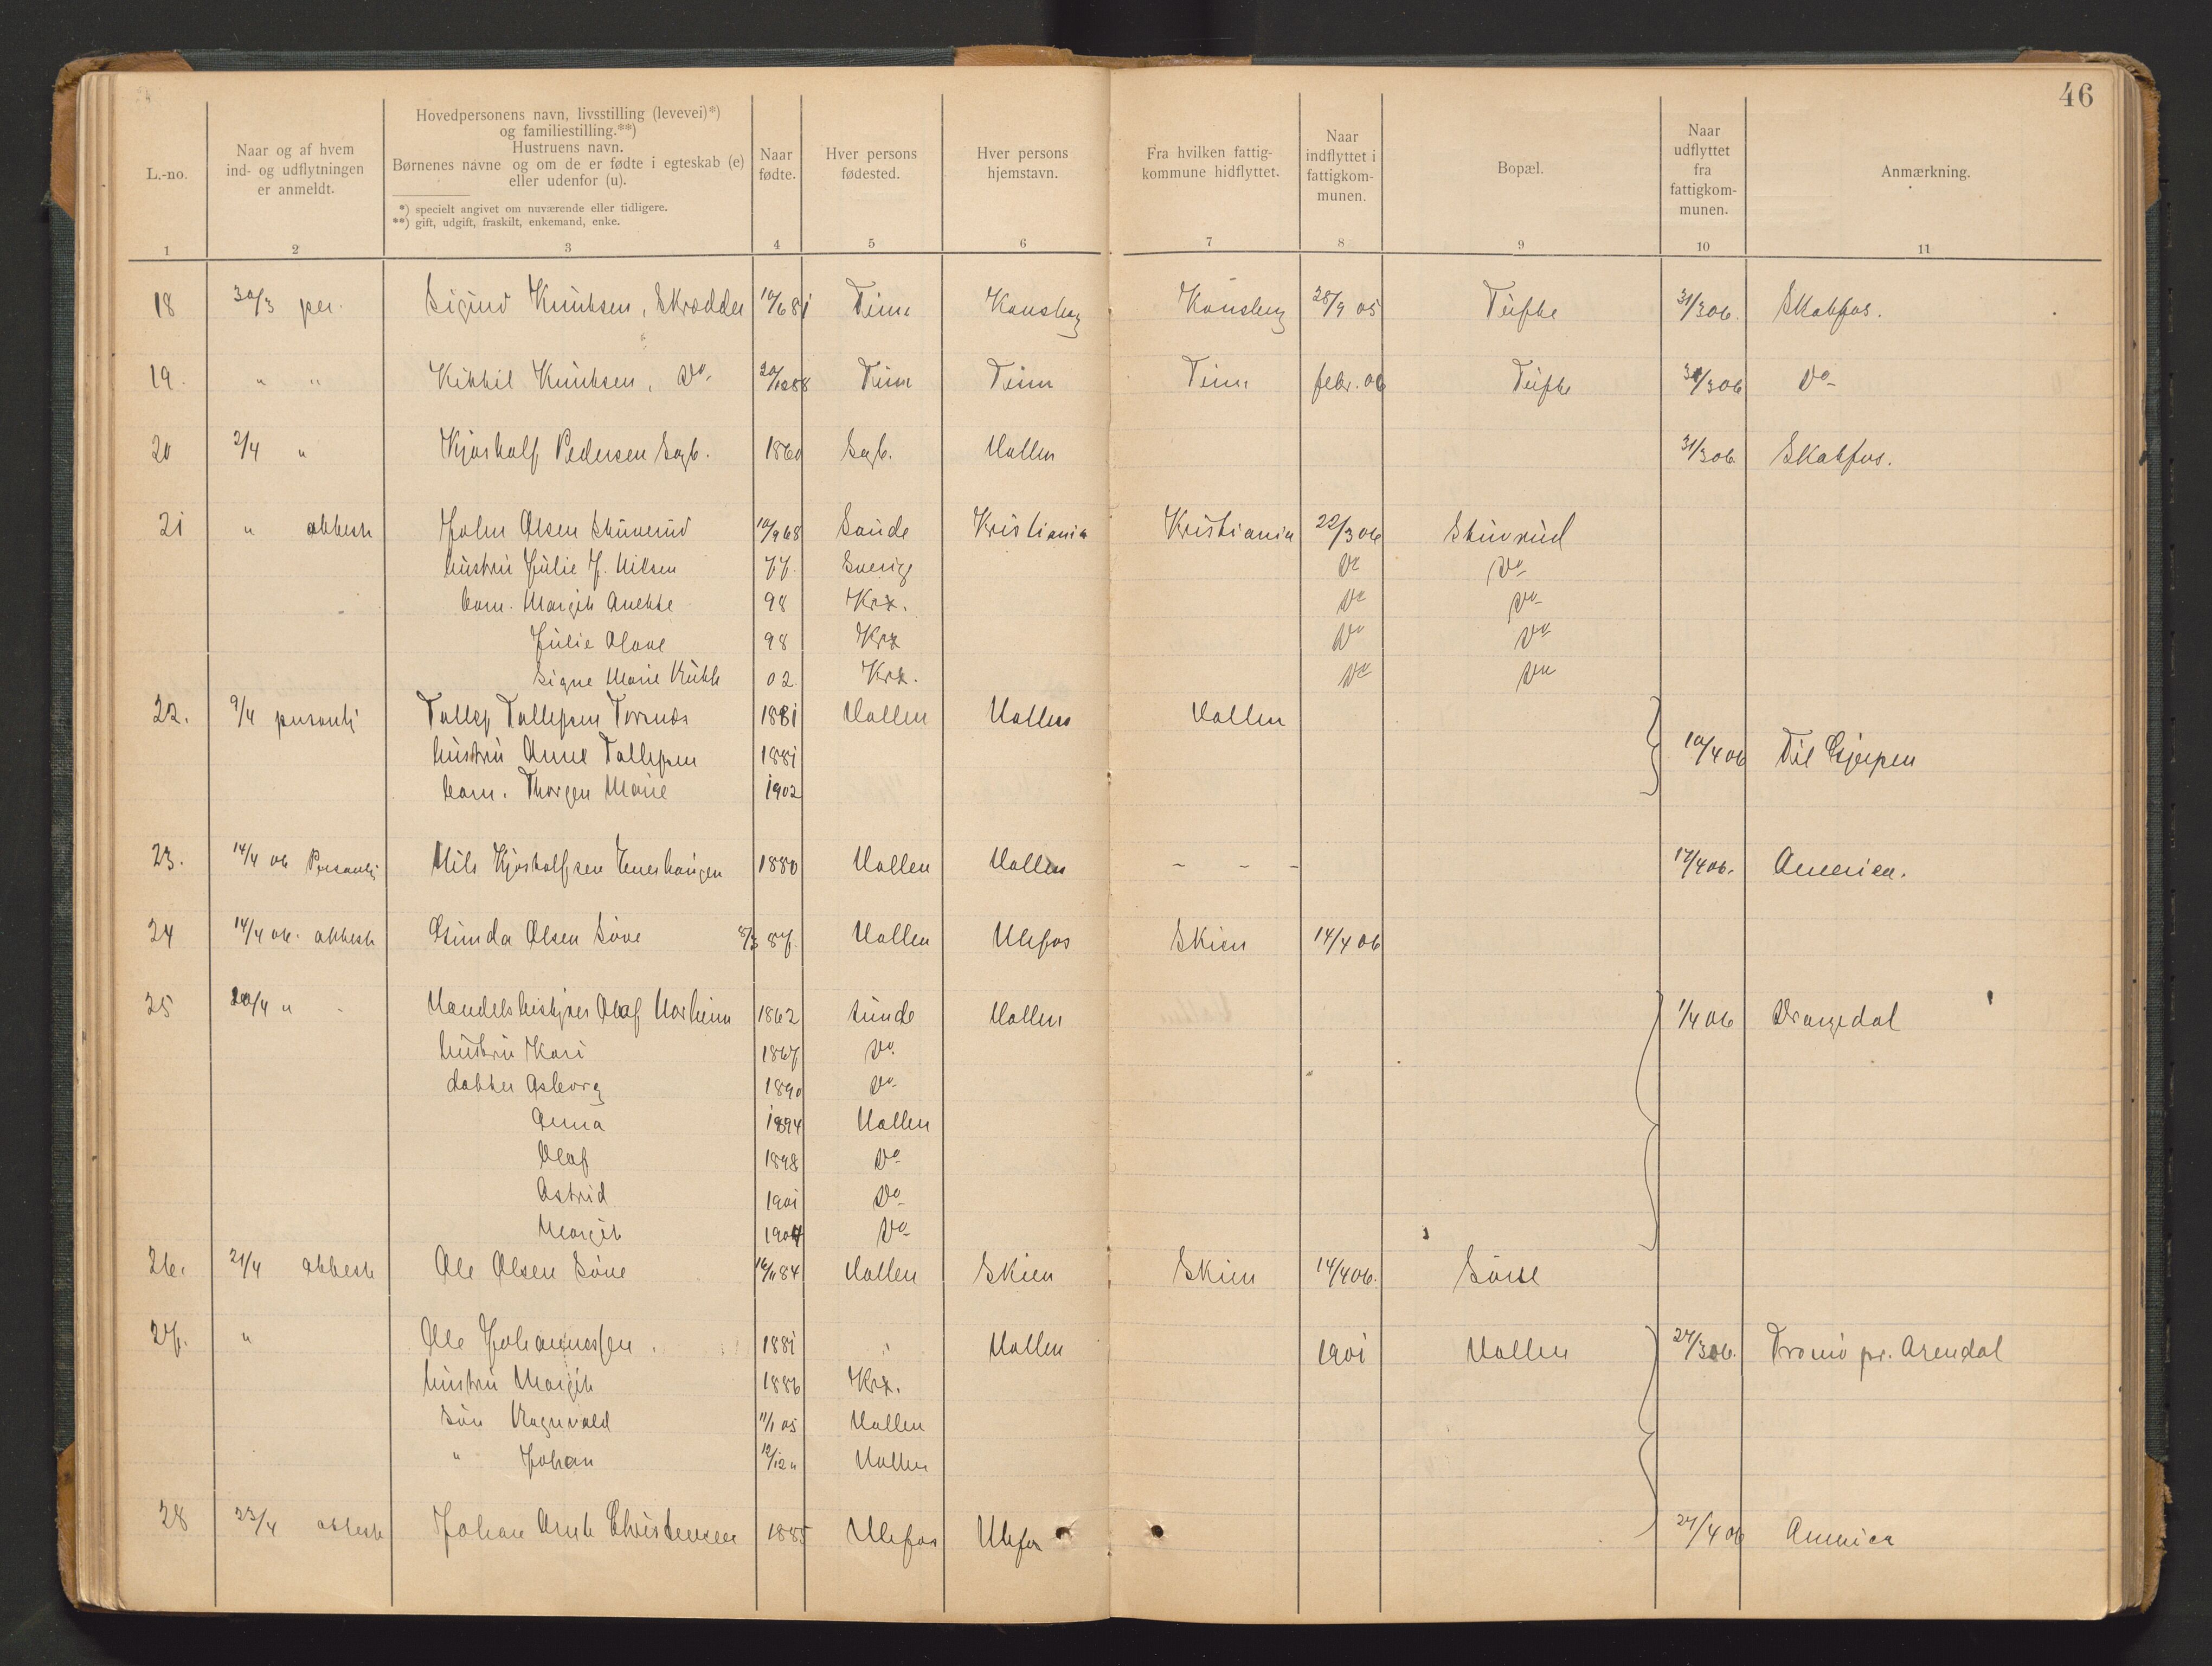 46
L.-no.
Naar og af hvem
ind- og udflytningen
er anmeldt.
Hovedpersonens navn, livsstilling (levevei)*)
og familiestilling.**)
Hustruens navn.
Børnenes navne og om de er fødte i egteskab (e)
eller udenfor (u).
*) specielt angivet om nuværende eller tidligere.
**) gift, udgift, fraskilt, enkemand, enke.
Naar
fødte.
Hver persons
fødested.
Hver persons
hjemstavn.
Fra hvilken fattig-
kommune hidflyttet.
Naar
indflyttet i
fattigkom-
munen.
Bopæl.
Naar
udflyttet
fra
fattigkom-
munen.
Anmærkning.
1 2 3 4 5 6 7 8 9 10 11
18 30/3 per. Sigurd Knutsen, Skrædder 10/6 81 Tinn Konsberg Konsberg 28/9 05 Tufte 31/3 06. Skotfos.
19. " " Kittil Knutsen, Do. 20/12 88 Tinn Tinn Tinn febr. 06 Tufte 31/3 06 Do
20 2/4 " Kjøstolf Pedersen 1860 Hollen 31/3 06. Skotfos.
21 " attest John Olsen 10/9 68 Sande Kristiania Kristiania 22/3 06
hustru Julie J. Nilsen 77. Sverige Do Do
barn. Margit Anette 98 Kra. Do Do
Julie Olave 98 Kra Do Do
Signe Marie Ruth 02. Kra. Do Do
22. 9/4 personlig Tollef Tollefsen 1881 Hollen Hollen Hollen
hustru Anne Tollefsen 1881 10/4 06 Til Gjerpen
barn. Thorgen Marie 1902
23. 14/4 06 Personlig Nils Kjøstolfsen 1880 Hollen Hollen - - - 17/4 06. America.
24 14/4 06. attest Gunda Olsen Søve 8/3 87. Hollen Ulefos Skien 14/4 06
25 20/4 " Handelsbestyrer Olaf Norheim 1862 Hollen 1/4 06 Drangedal
hustru Kari 1867 Do.
datter Asborg 1890 Do
Anna 1894 Hollen
Olaf 1898 Do
Astrid 1901 Do
Margit 1904 Do
26. 21/4 attest Ole Olsen Søve 16/11 84 Hollen Skien Skien 14/4 06. Søve
27. " Ole Johannessen. 1881 Hollen 1901 Hollen 27/3 06. Tromø pr. Arendal
hustru Margit 1886 Kra.
Søn Ragnvald 11/1 05 Hollen
" Johan 12/12 " Hollen
28 23/4 attest Johan Arnt Christensen 1885 Ulefos Ulefos 27/4 06 America